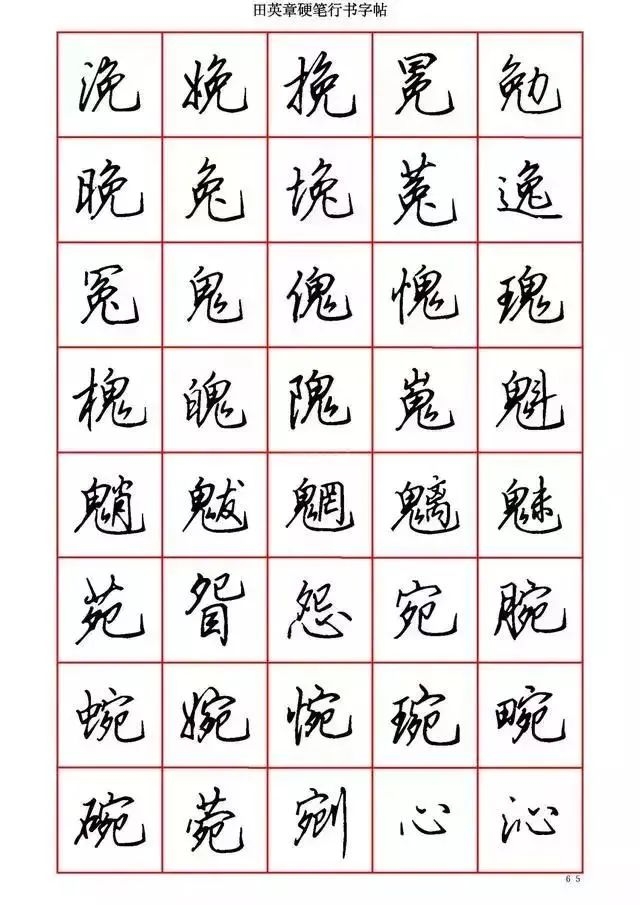 田英章硬笔行书字帖
浼 娩 挽 冕 勉
晚 兔 堍 菟 逸
冤 鬼 傀 愧 瑰
槐 魄 隗 嵬 魁
魈 魃 魍 魑 魅
苑 眢 怨 宛 腕
蜿 婉 惋 琬 畹
碗 菀 剜 心 沁
65